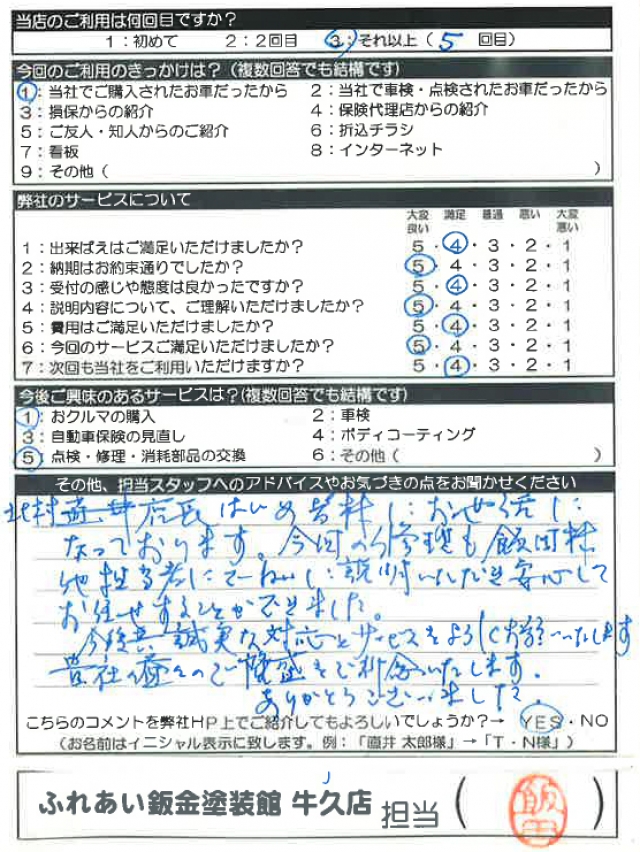 当店のご利用は何回目ですか？
1：初めて 2：2回目 3：それ以上（ 5 回目）
今回のご利用のきっかけは？（複数回答でも結構です）
1：当社でご購入されたお車だったから 2：当社で車検・点検されたお車だったから
3：損保からの紹介 4：保険代理店からの紹介
5：ご友人・知人からのご紹介 6：折込チラシ
7：看板 8：インターネット
9：その他（ ）
弊社のサービスについて
大変良い 満足 普通 悪い 大変悪い
1：出来ばえはご満足いただけましたか？ 5・4・3・2・1
2：納期はお約束通りでしたか？ 5・4・3・2・1
3：受付の感じや態度は良かったですか？ 5・4・3・2・1
4：説明内容について、ご理解いただけましたか？ 5・4・3・2・1
5：費用はご満足いただけましたか？ 5・4・3・2・1
6：今回のサービスご満足いただけましたか？ 5・4・3・2・1
7：次回も当社をご利用いただけますか？ 5・4・3・2・1
今後ご興味のあるサービスは？（複数回答でも結構です）
1：おクルマの購入 2：車検
3：自動車保険の見直し 4：ボディコーティング
5：点検・修理・消耗部品の交換 6：その他（ ）
その他、担当スタッフへのアドバイスやお気づきの点をお聞かせください
店長はじめ皆様にお世話に
なっております。今回の修理も飯田様
他担当者にてーねいに説明いただき安心して
お任せすることができました。
今後共誠実な対応とサービスをよろしくお願いいたします
貴社の益々のご隆盛をご祈念いたします。
ありがとうございました。
こちらのコメントを弊社HP上でご紹介してもよろしいでしょうか？→ YES・NO
（お名前はイニシャル表示に致します。例：「直井 太郎様」→「T・N様」）
ふれあい鈑金塗装館 牛久店 担当（ 飯田 ）